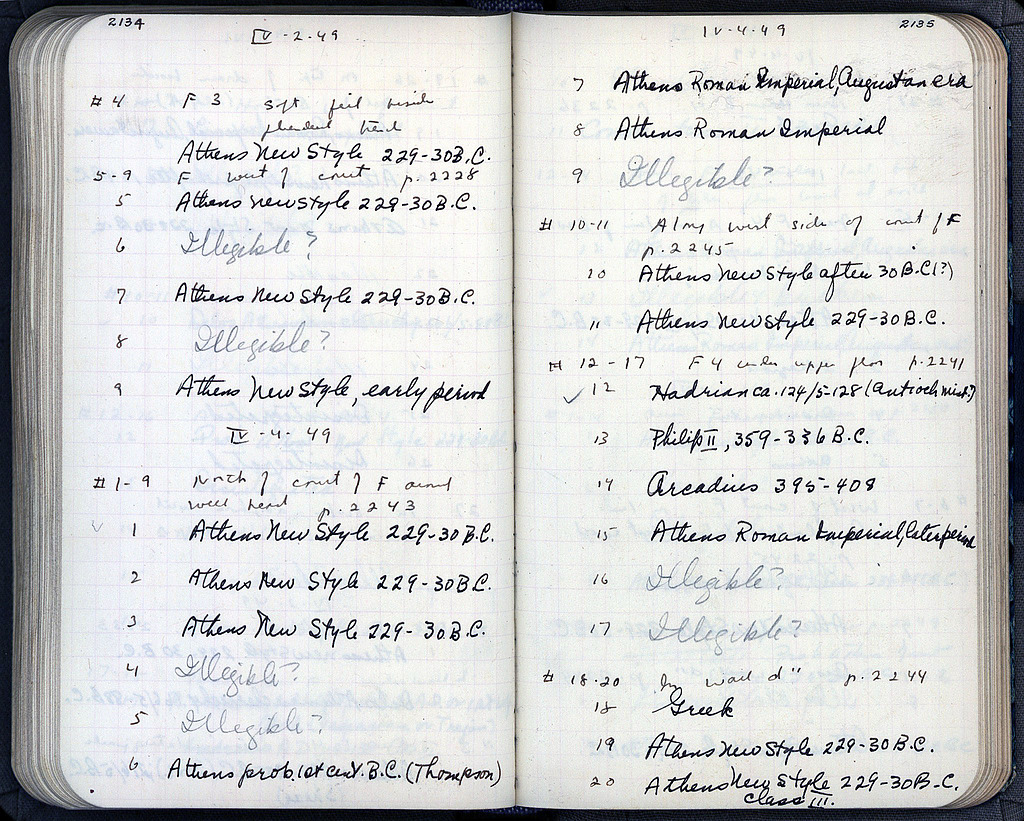 2134
IV-2-49
#4 F 3 soft fill
Athens New Style 229-30 B.C.
5-9 F west of court p. 2228
5 Athens New Style 229-30 B.C.
6 Illegible?
7 Athens New Style 229-30 B.C.
8 Illegible?
9 Athens New Style, early period
IV-4-49
#1-9 North of court of F around
well head p. 2243
✓ 1 Athens New Style 229-30 B.C.
2 Athens New Style 229-30 B.C.
3 Athens New Style 229-30 B.C.
4 Illegible?
5 Illegible?
6 Athens prob. 1st cent. B.C. (Thompson)
2135
IV-4-49
7 Athens Roman Imperial, Augustan era
8 Athens Roman Imperial
9 Illegible?
#10-11 Along west side of court of F
p. 2245
10 Athens New Style after 30 B.C. (?)
11 Athens New Style 229-30 B.C.
#12-17 F 4 under upper floor p. 2241
✓ 12 Hadrian ca. 124/5-128 (Antioch mint?)
13 Philip II, 359-336 B.C.
14 Arcadius 395-408
15 Athens Roman Imperial, late period
16 Illegible?
17 Illegible?
#18-20 p. 2244
18 Greek
19 Athens New Style 229-30 B.C.
20 Athens New Style 229-30 B.C.
Class III.